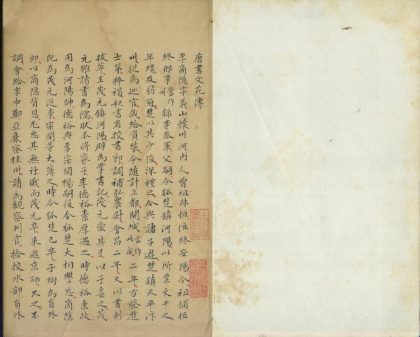 唐書文苑傳
李商隱字義山懷州河內人曾祖叔恒位終安陽令祖俌位
終邢州錄事參軍父嗣令狐楚鎮河陽以所業文干之
年纔及弱冠楚以其少俊深禮之令與諸子遊楚鎮天平汴
州從為巡官歲給資裝令隨計上都開城當作成二年方登進
士第釋褐秘書省校書郎調補弘農尉會昌二年又以書判
拔萃王茂元鎮河陽辟為掌書記茂元愛其才以子妻之茂
元雖讀書為儒然本將家子李德裕素厚遇之時德裕秉政
用為河陽帥德裕與李宗閔楊嗣復令狐楚大相讎怨商隱
既為茂元從事宗閔黨大薄之時令狐楚已卒子綯為員外
郎以商隱背恩尤惡其無行俄而茂元卒來遊京師久之不
調會給事中鄭亞廉察桂州請為觀察判官檢校水部員外